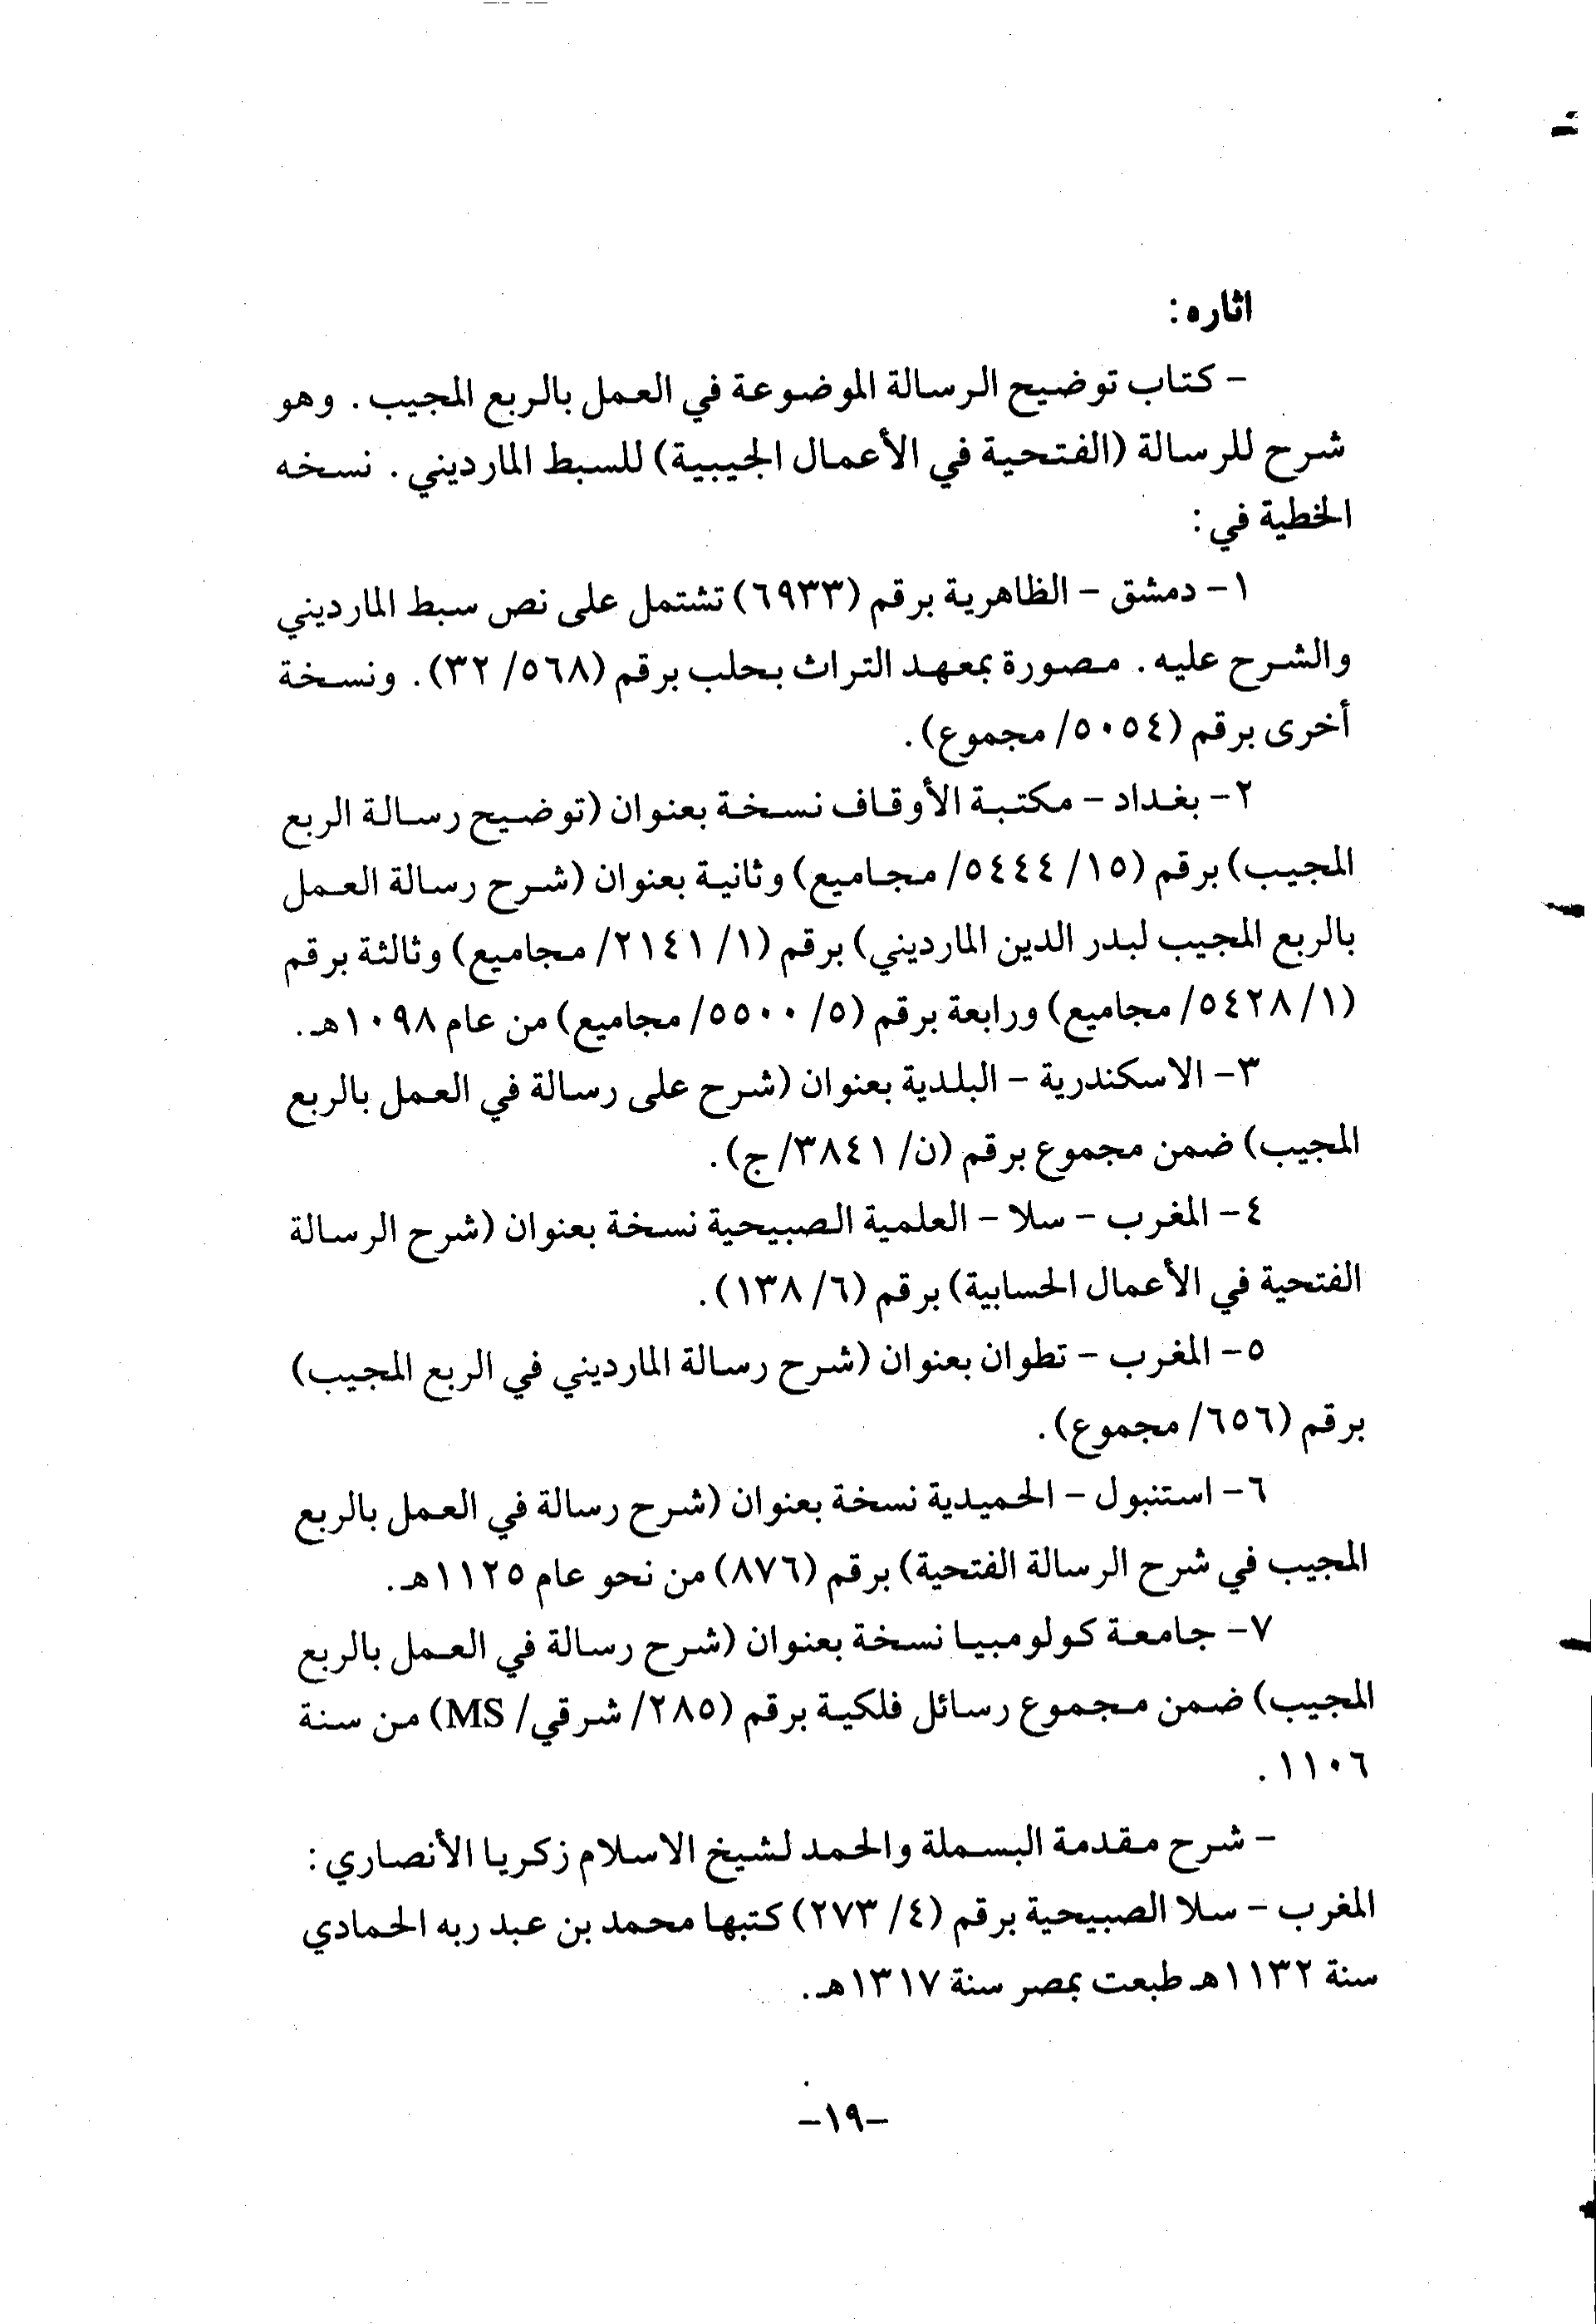 اثاره :
- كتاب توضيح الرسالة الموضوعة في العمل بالربع المجيب . وهو
شرح للرسالة (الفتحية في الأعمال الجيبية) للسبط المارديني . نسخه
الخطية في :
١- دمشق - الظاهرية برقم (٦٩٣٣) تشتمل على نص سبط المارديني
والشرح عليه . مصورة بمعهد التراث بحلب برقم (٥٦٨/ ٣٢) . ونسخة
أخرى برقم (٥٠٥٤/ مجموع) .
٢- بغداد - مكتبة الأوقاف نسخة بعنوان (توضيح رسالة الربع
المجيب) برقم (١٥/ ٥٤٤٤/ مجاميع) وثانية بعنوان (شرح رسالة العمل
بالربع المجيب لبدر الدين المارديني) برقم (١/ ٢١٤١/ مجاميع) وثالثة برقم
(١/ ٥٤٢٨/ مجاميع) ورابعة برقم (٥/ ٥٥٠٠/ مجاميع) من عام ١٠٩٨هـ .
٣- الاسكندرية - البلدية بعنوان (شرح على رسالة في العمل بالربع
المجيب) ضمن مجموع برقم (ن/ ٣٨٤١/ ج) .
٤- المغرب - سلا - العلمية الصبيحية نسخة بعنوان (شرح الرسالة
الفتحية في الأعمال الحسابية) برقم (٦/ ١٣٨) .
٥- المغرب - تطوان بعنوان (شرح رسالة المارديني في الربع المجيب)
برقم (٦٥٦/ مجموع) .
٦- استنبول - الحميدية نسخة بعنوان (شرح رسالة في العمل بالربع
المجيب في شرح الرسالة الفتحية) برقم (٨٧٦) من نحو عام ١١٢٥هـ .
٧- جامعة كولومبيا نسخة بعنوان (شرح رسالة في العمل بالربع
المجيب) ضمن مجموع رسائل فلكية برقم (٢٨٥/ شرقي/ MS) من سنة
١١٠٦ .
- شرح مقدمة البسملة والحمد لشيخ الاسلام زكريا الأنصاري :
المغرب - سلا الصبيحية برقم (٤/ ٢٧٣) كتبها محمد بن عبد ربه الحمادي
سنة ١١٣٢هـ طبعت بمصر سنة ١٣١٧هـ .
-١٩-